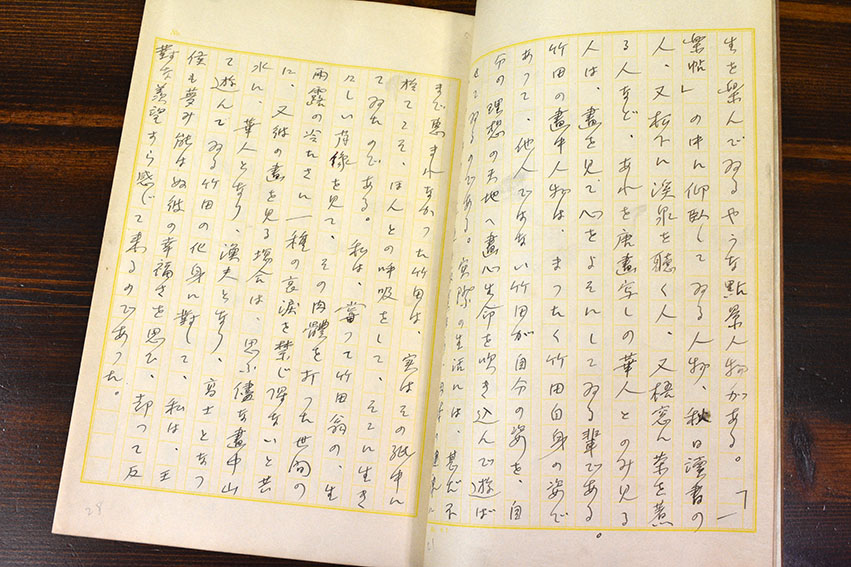 生を楽んでゐるやうな點景人物がある。「
帖」の中に仰臥してゐる人物、秋日讀書の
人、又松下に渓泉を聴く人、又梧窓に茶を煮
る人など、あれを唐畫写しの華人とのみ見る
人は、畫を見て心をよそにしてゐる輩である。
竹田の畫中人物は、まつたく竹田自身の姿で
あつて、他人ではない竹田が自分の姿を、自
分の理想の天地へ畫心生命を吹き込んで遊ば
してゐるのである。実際の生活には、甚だ不
まで恵まれなかつた竹田は、実はその紙中に
於てこそ、ほんとの呼吸をして、そこに生き
てゐたのである。私は、嘗つて竹田翁の、生
々しい肖像を見て、その肉體を打つた世間の
雨露の冷たさに一種の哀涙を禁じ得ないと共
に、又彼の畫を見る場合は、思ふ儘な畫中山
水に、華人となり、漁夫となり、高士となつ
て遊んでゐる竹田の化身に対して、私は、王
侯も夢み能はぬ彼の幸福さを思ひ、却つて反
對な羨望すら感じて来るのであつた。
28